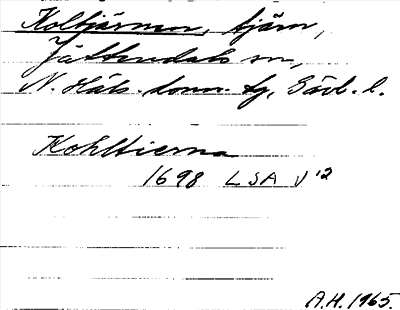 Koltjärnen, tjärn,
Jättendals sn,
N. Häls. doms. tg, Gävb. l.
Kohltierna
1698 LSA V 12
A.H. 1965.